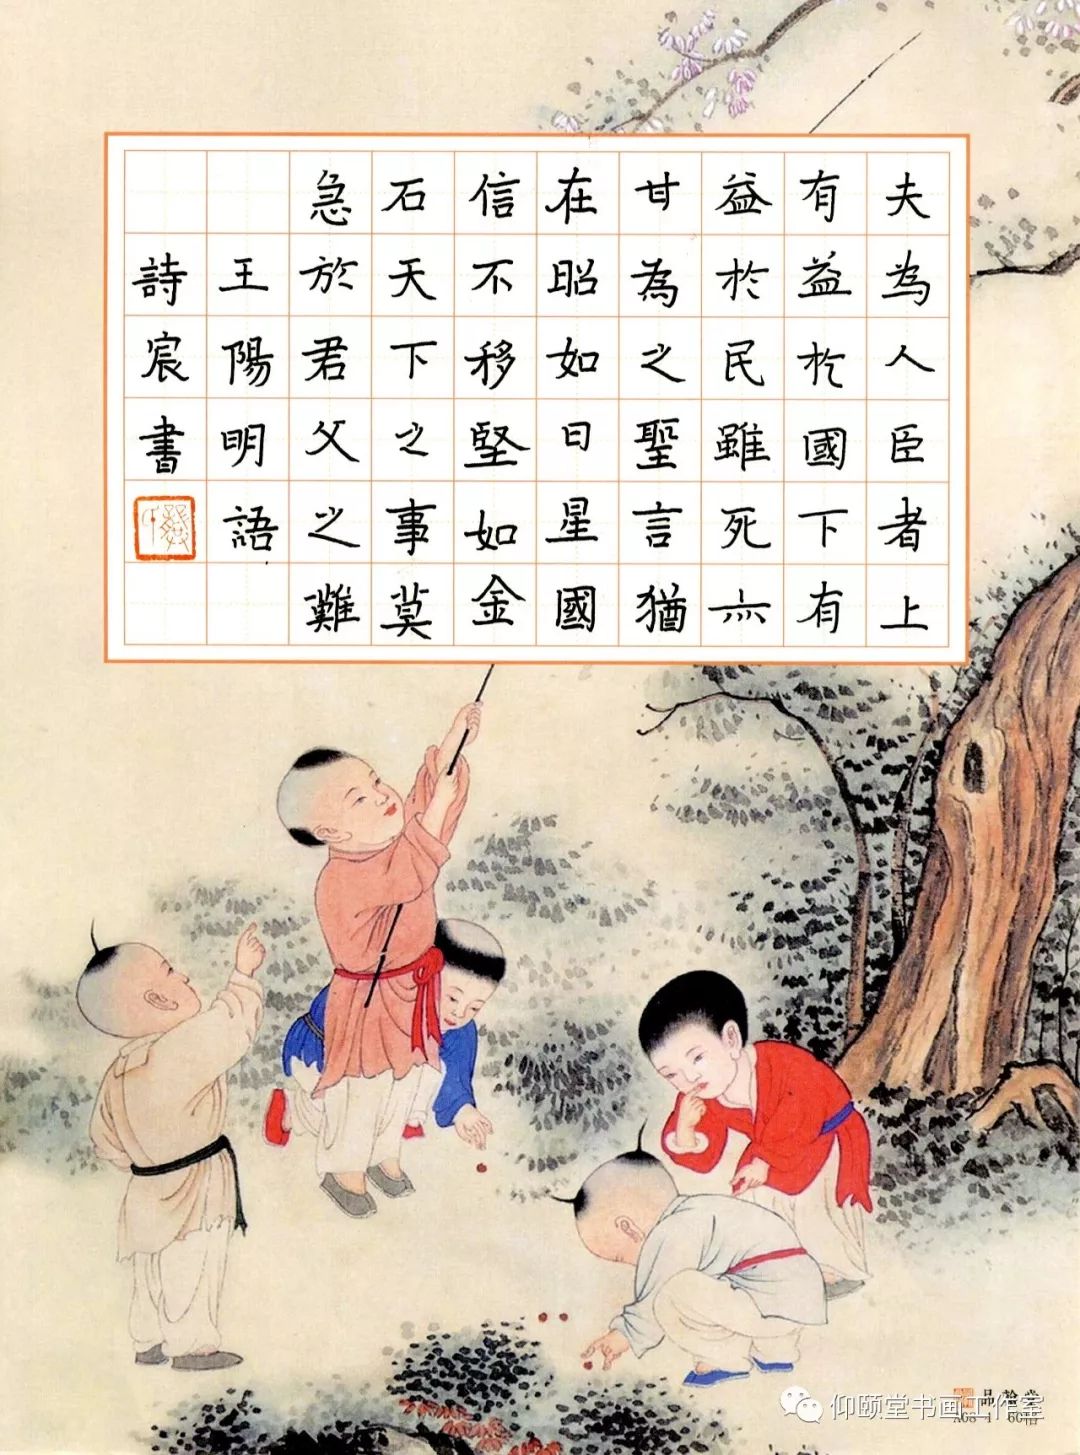 夫為人臣者上
有益於國下有
益於民雖死亦
甘為之聖言猶
在昭如日星國
信不移堅如金
石天下之事莫
急於君父之難
王陽明語
詩宸書
品翰堂
A08-1 60格
仰颐堂书画工作室